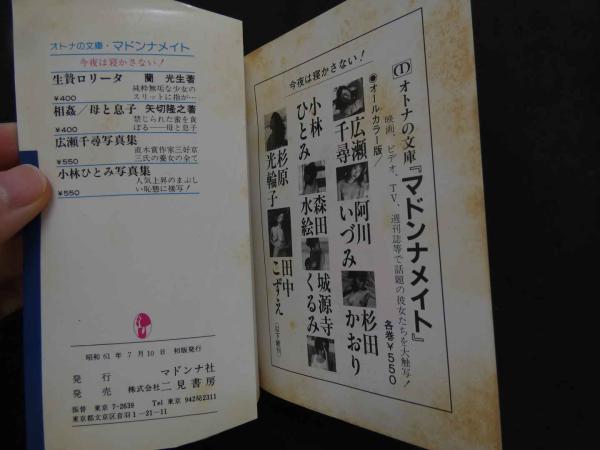 オトナの文庫・マドンナメイト
今夜は寝かさない!
生贄ロリータ 蘭 光生著
¥400 純粋無垢な少女の
スリットに指が…
相姦/母と息子 矢切隆之著
¥400 禁じられた蜜を貪
ぼる――母と息子
広瀬千尋写真集
¥550 直木賞作家三好京
三氏の養女の全て
小林ひとみ写真集
¥550 人気上昇のまぶし
い恥態に接写!
昭和61年7月10日 初版発行
発行 マドンナ社
発売 株式会社二見書房
振替 東京 7-2639 Tel 東京 942局2311
東京都文京区音羽1-21-11
① オトナの文庫『マドンナメイト』
映画、ビデオ、TV、週刊誌等で話題の彼女たちを大触写!
●オールカラー版/
各巻¥550
今夜は寝かさない!
広瀬千尋
阿川いづみ
杉田かおり
小林ひとみ
森田水絵
城源寺くるみ
杉原光輪子
田中こずえ
(以下続刊)